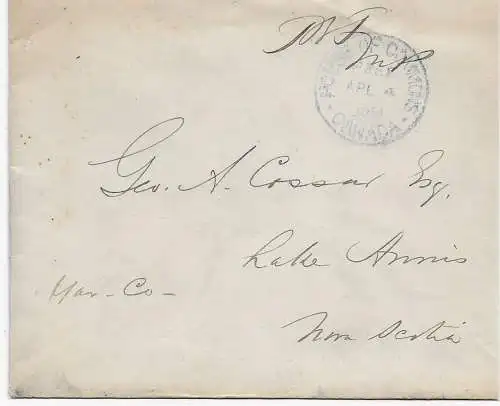 M.P.
HOUSE OF COMMONS
FREE
APL 4
CANADA
Geo. A. Cossar Esq.
Lake Annis
Yar - Co -
Nova Scotia